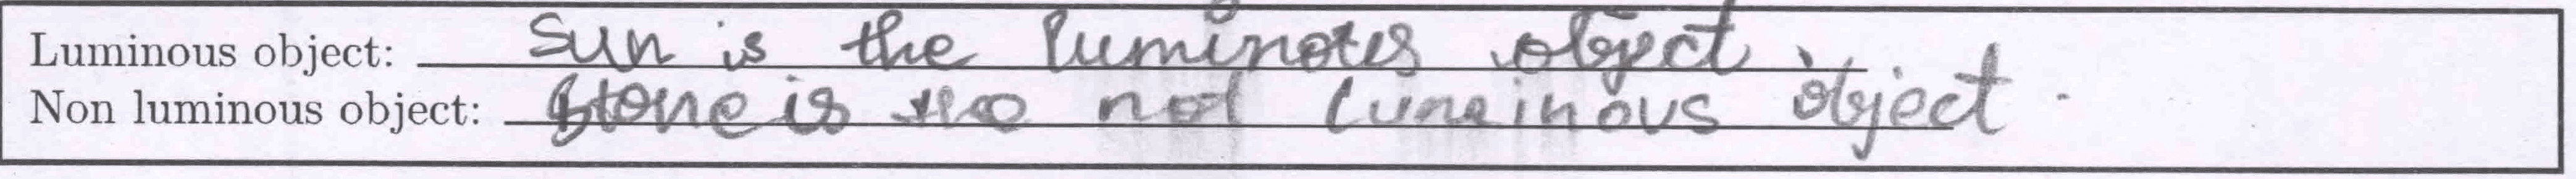 Luminous object: Sun is the luminotes object.
Non luminous object: Stone is the not luminous object.